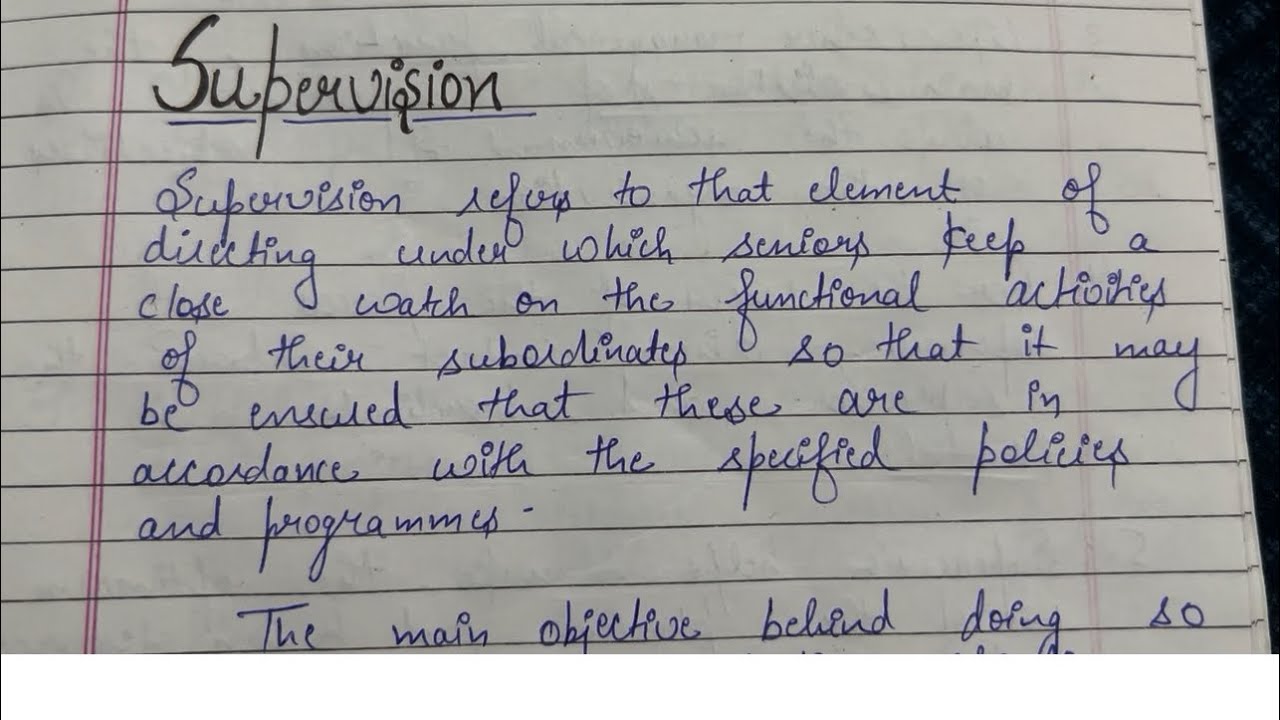 Supervision
Supervision refers to that element of
directing under which seniors keep a
close watch on the functional activities
of their subordinates so that it may
be ensured that these are in
accordance with the specified policies
and programmes.
The main objective behind doing so